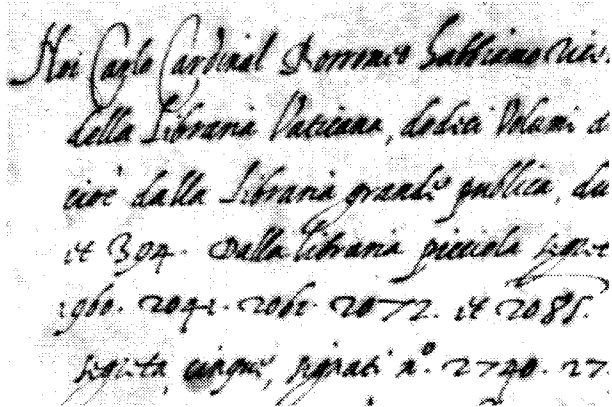 Noi Carlo Cardinal Borromeo habbiamo rice
della Libraria Vaticana, dodici Volumi d
cioè dalla Libraria grande publica, du
et 394. Dalla libraria picciola segnet
1960. 2041. 206 2072. et 2085.
segreta, cinque, signati n.° 2740. 27